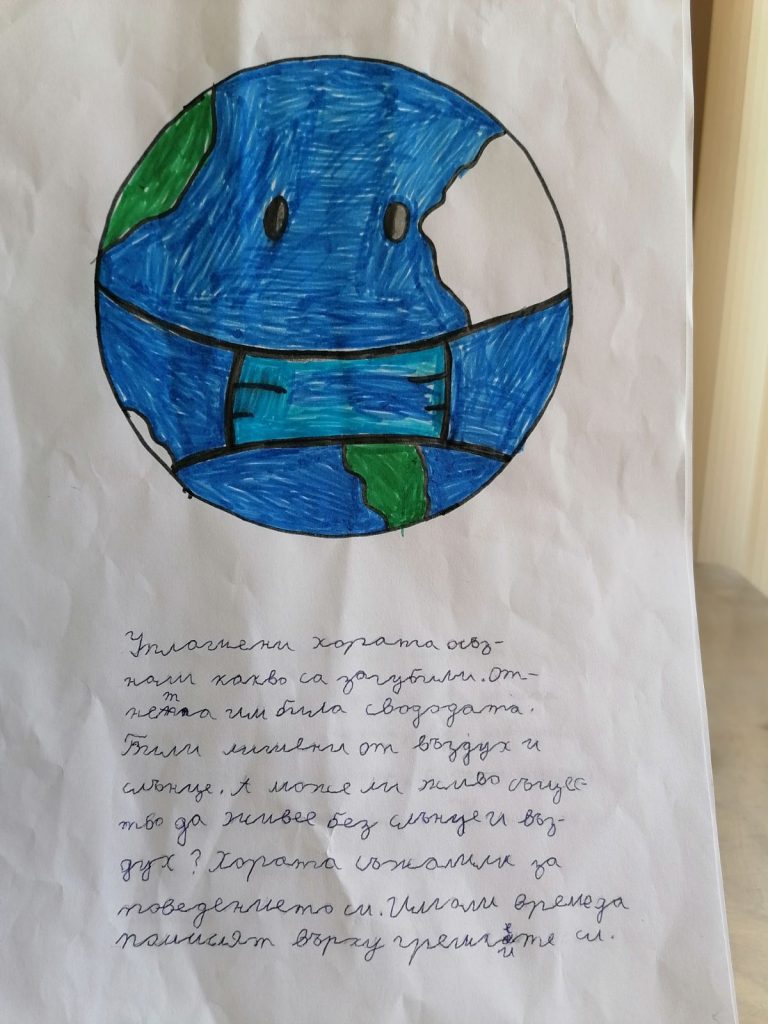 Уплашени хората осъз-
нали какво са загубили. От-
нета им била свободата.
Били лишени от въздух и
слънце. А може ли живо същес-
тво да живее без слънце и въз-
дух? Хората съжалили за
поведението си. Имали време да
помислят върху грешките си.